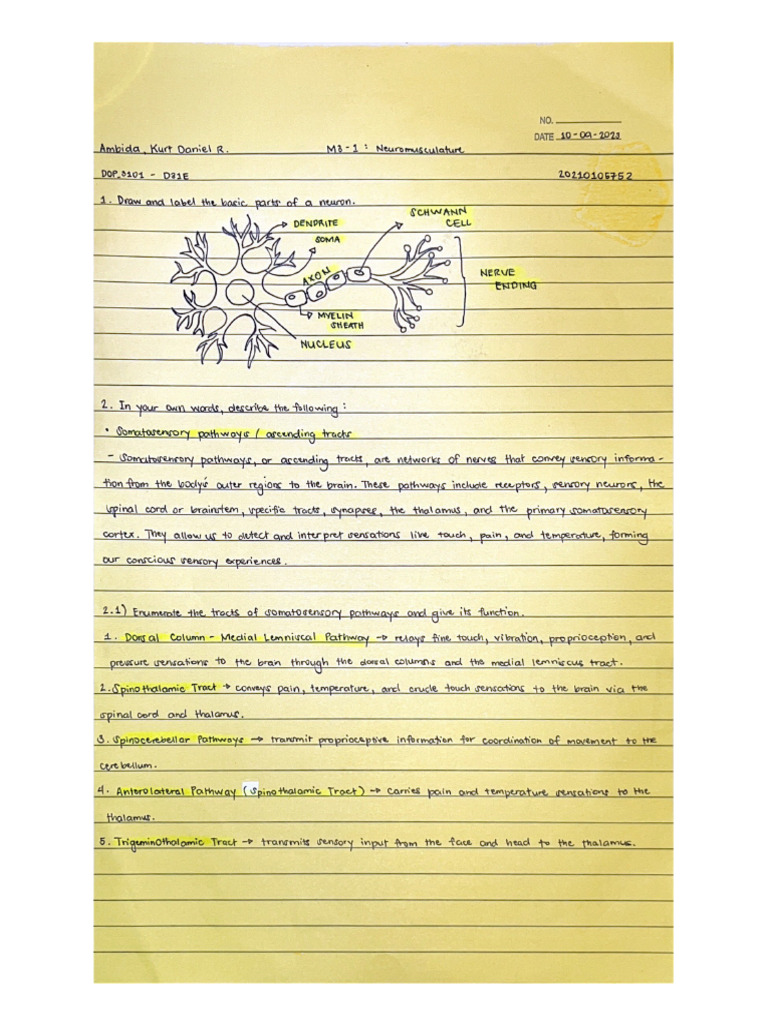 NO.
DATE 10-09-2023
Ambida, Kurt Daniel R. M3-1 : Neuromusculature
DOP_3101 - D31E 20210105752
1. Draw and label the basic parts of a neuron.
DENDRITE
SCHWANN
CELL
SOMA
AXON
NERVE
ENDING
MYELIN
SHEATH
NUCLEUS
2. In your own words, describe the following :
• Somatosensory pathways / ascending tracts
- Somatosensory pathways, or ascending tracts, are networks of nerves that convey sensory informa -
tion from the body's outer regions to the brain. These pathways include receptors, sensory neurons, the
spinal cord or brainstem, specific tracts, synapses, the thalamus, and the primary somatosensory
cortex. They allow us to detect and interpret sensations like touch, pain, and temperature, forming
our conscious sensory experiences.
2.1) Enumerate the tracts of somatosensory pathways and give its function.
1. Dorsal Column - Medial Lemniscal Pathway → relays fine touch, vibration, proprioception, and
pressure sensations to the brain through the dorsal columns and the medial lemniscus tract.
2. Spinothalamic Tract → conveys pain, temperature, and crude touch sensations to the brain via the
spinal cord and thalamus.
3. Spinocerebellar Pathways → transmit proprioceptive information for coordination of movement to the
cerebellum.
4. Anterolateral Pathway (Spinothalamic Tract) → carries pain and temperature sensations to the
thalamus.
5. Trigeminothalamic Tract → transmits sensory input from the face and head to the thalamus.